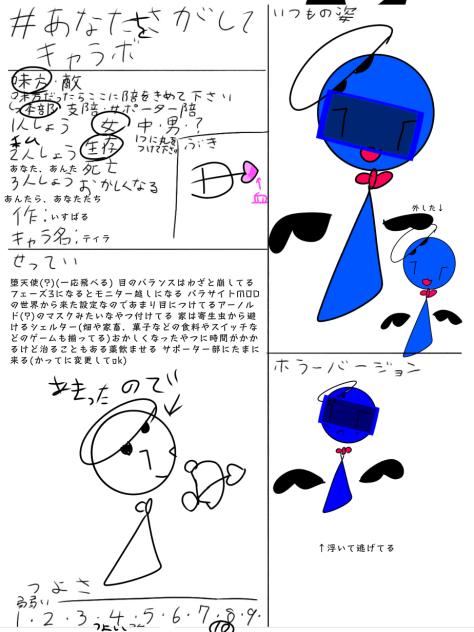 #あなたをさがして
キャラボ
味方・敵
味方だったらここに陪をきめて下さい
本部 支陪 サポーター陪
1人しょう 女 中・男・?
私
2人しょう 生存
1つに丸を
つけて下さい
あなた、あんた 死亡
3人しょう おかしくなる
あんたら、あなたたち
作:いすぱる
キャラ名:テイラ
ぶき
せってい
堕天使(?)(一応飛べる) 目のバランスはわざと崩してる
フェーズ3になるとモニター越しになる パラサイトMOD
の世界から来た設定なのであまり目につけてるアーノル
ド(?)のマスクみたいなやつ付けてる 家は寄生虫から避
けるシェルター(畑や家畜、菓子などの食料やスイッチな
どのゲームも揃ってる)おかしくなったやつに時間がかか
るけど治ることもある薬飲ませる サポーター部にたまに
来る(かってに変更してok)
あまったので
つよさ
弱い
1・2・3・4・5・6・7・8・9・
いつもの姿
外した↓
ホラーバージョン
↑浮いて逃げてる